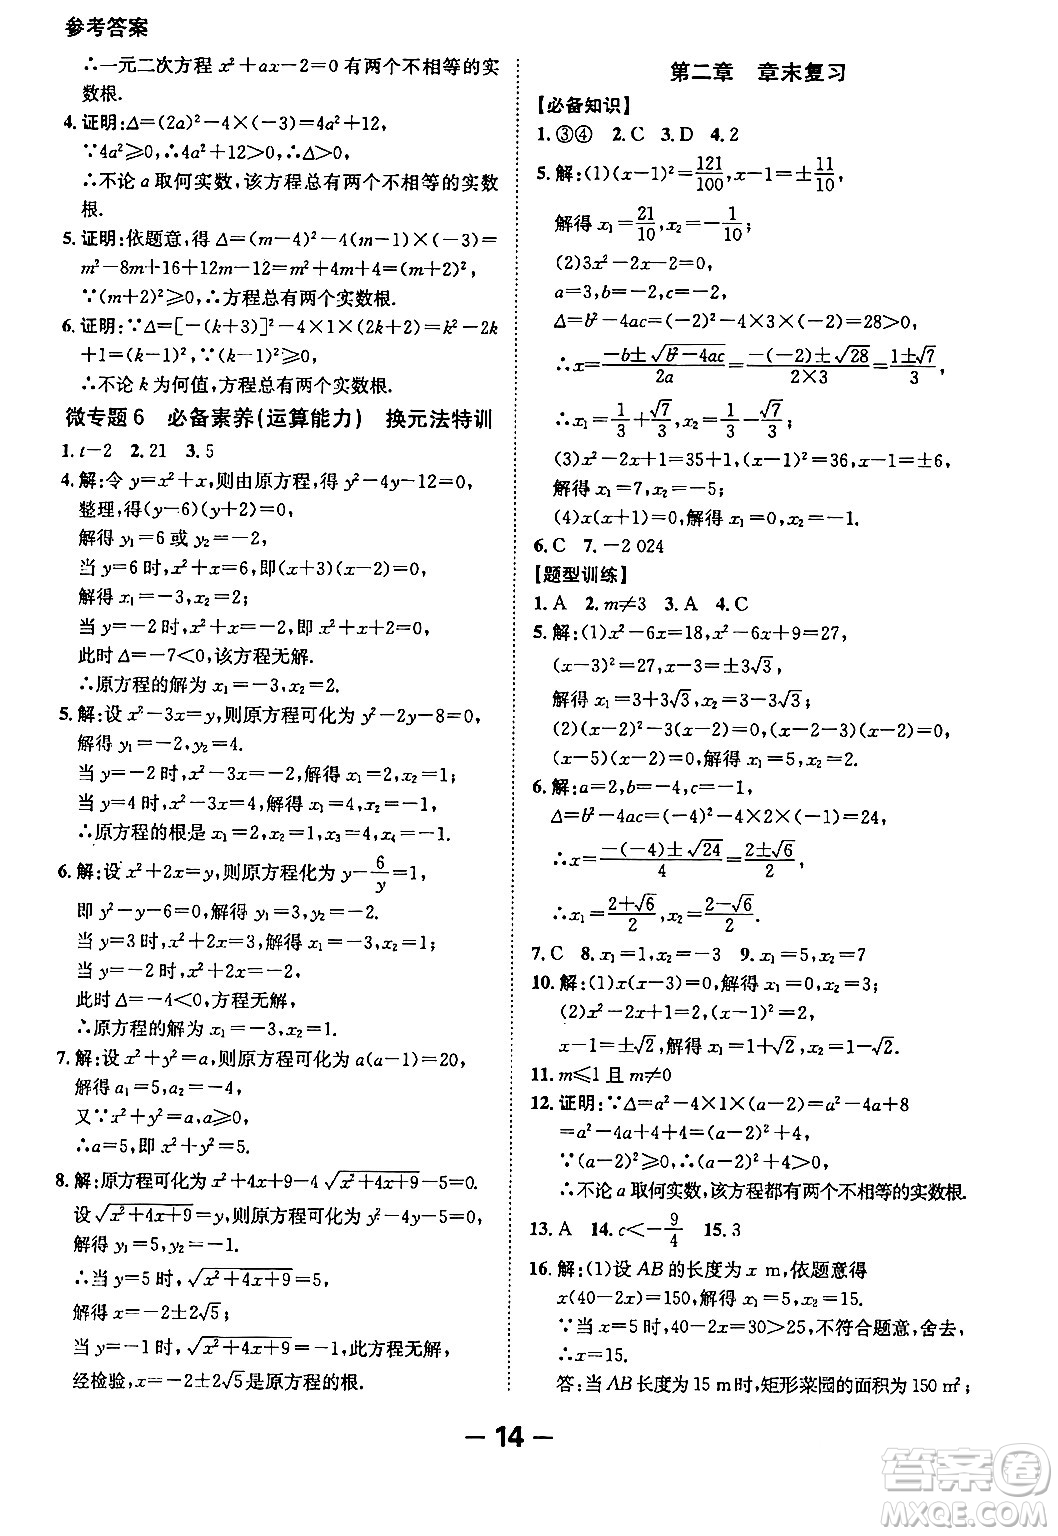 参考答案
∴一元二次方程 x²+ax-2=0有两个不相等的实
数根.
4.证明:Δ=(2a)²-4×(-3)=4a²+12,
∵4a²⩾0,∴4a²+12>0,∴Δ>0,
∴不论 a 取何实数,该方程总有两个不相等的实数
根.
5.证明:依题意,得 Δ=(m-4)²-4(m-1)×(-3)=
m²-8m+16+12m-12=m²+4m+4=(m+2)².
∵(m+2)²⩾0,∴方程总有两个实数根.
6.证明:∵Δ=[-(k+3)]²-4×1×(2k+2)=k²-2k
+1=(k-1)²,∵(k-1)²⩾0,
∴不论 k 为何值,方程总有两个实数根.
微专题6 必备素养(运算能力) 换元法特训
1.t-2 2.21 3.5
4.解:令 y=x²+x,则由原方程,得 y²-4y-12=0,
整理,得(y-6)(y+2)=0,
解得 y₁=6 或 y₂=-2,
当 y=6 时,x²+x=6,即(x+3)(x-2)=0,
解得 x₁=-3,x₂=2;
当 y=-2 时,x²+x=-2,即 x²+x+2=0,
此时 Δ=-7<0,该方程无解.
∴原方程的解为 x₁=-3,x₂=2.
5.解:设 x²-3x=y,则原方程可化为 y²-2y-8=0,
解得 y₁=-2,y₂=4.
当 y=-2 时,x²-3x=-2,解得 x₁=2,x₂=1,
当 y=4 时,x²-3x=4,解得 x₁=4,x₂=-1,
∴原方程的根是 x₁=2,x₂=1,x₃=4,x₄=-1.
6.解:设 x²+2x=y,则原方程化为 y-6/y=1,
即 y²-y-6=0,解得 y₁=3,y₂=-2.
当 y=3 时,x²+2x=3,解得 x₁=-3,x₂=1;
当 y=-2 时,x²+2x=-2,即 x²+2x+2=0,
此时 Δ=-4<0,方程无解,
∴原方程的解为 x₁=-3,x₂=1.
7.解:设 x²+y²=a,则原方程可化为 a(a-1)=20,
解得 a₁=5,a₂=-4,
又∵x²+y²=a,a⩾0,
∴a=5,即 x²+y²=5.
8.解:原方程可化为 x²+4x+9-4√(x²+4x+9)-5=0.
设√(x²+4x+9)=y,则原方程可化为 y²-4y-5=0,
解得 y₁=5,y₂=-1.
∴当 y=5 时,√(x²+4x+9)=5,
解得 x=-2±2√5;
当 y=-1 时,√(x²+4x+9)=-1,此方程无解.
经检验,x=-2±2√5是原方程的根.
第二章 章末复习
【必备知识】
1.③④ 2.C 3.D 4.2
5.解:(1)(x-1)²=121/100,x-1=±11/10,
解得 x₁=21/10,x₂=-1/10;
(2)3x²-2x-2=0,
a=3,b=-2,c=-2,
Δ=b²-4ac=(-2)²-4×3×(-2)=28>0,
∴x=(-b±√(b²-4ac))/2a=(-(-2)±√28)/(2×3)=(1±√7)/3,
∴x₁=1/3+√7/3,x₂=1/3-√7/3;
(3)x²-2x+1=35+1,(x-1)²=36,x-1=±6,
解得 x₁=7,x₂=-5;
(4)x(x+1)=0,解得 x₁=0,x₂=-1.
6.C 7.-2 024
【题型训练】
1.A 2.m≠3 3.A 4.C
5.解:(1)x²-6x=18,x²-6x+9=27,
(x-3)²=27,x-3=±3√3,
解得 x₁=3+3√3,x₂=3-3√3;
(2)(x-2)²-3(x-2)=0,(x-2-3)(x-2)=0,
(x-5)(x-2)=0,解得 x₁=5,x₂=2.
6.解:a=2,b=-4,c=-1,
Δ=b²-4ac=(-4)²-4×2×(-1)=24,
∴x=(-(-4)±√24)/4=(2±√6)/2,
∴x₁=(2+√6)/2,x₂=(2-√6)/2.
7.C 8.x₁=1,x₂=-3 9.x₁=5,x₂=7
10.解:(1)x(x-3)=0,解得 x₁=0,x₂=3;
(2)x²-2x+1=2,(x-1)²=2,
x-1=±√2,解得 x₁=1+√2,x₂=1-√2.
11.m⩽1 且 m≠0
12.证明:∵Δ=a²-4×1×(a-2)=a²-4a+8
=a²-4a+4+4=(a-2)²+4,
∵(a-2)²⩾0,∴(a-2)²+4>0,
∴不论 a 取何实数,该方程都有两个不相等的实数根.
13.A 14.c<-9/4 15.3
16.解:(1)设 AB 的长度为 x m,依题意得
x(40-2x)=150,解得 x₁=5,x₂=15.
∵当 x=5 时,40-2x=30>25,不符合题意,舍去,
∴x=15.
答:当 AB 长度为 15 m时,矩形菜园的面积为 150 m²;
— 14 —
答案圈
MXQE.COM